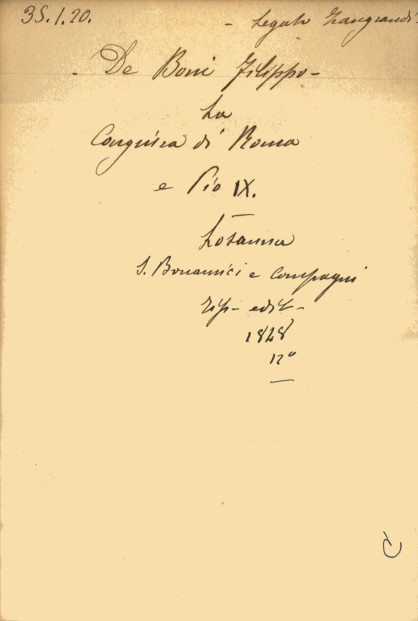 35.1.20. - Legato Zangrandi
- De Boni Filippo -
La
Congiura di Roma
e Pio IX.
Losanna
S. Bonamici e Compagni
tip- edit-
1848
12°